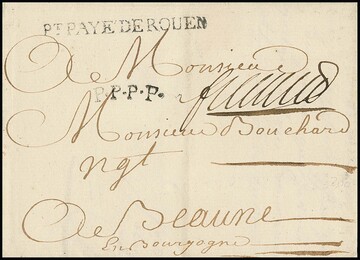 PT PAYÉ DE ROUEN
A Monsieur
P.P.P.P.
Monsieur Bouchard
ngt
A Beaune
En Bourgogne